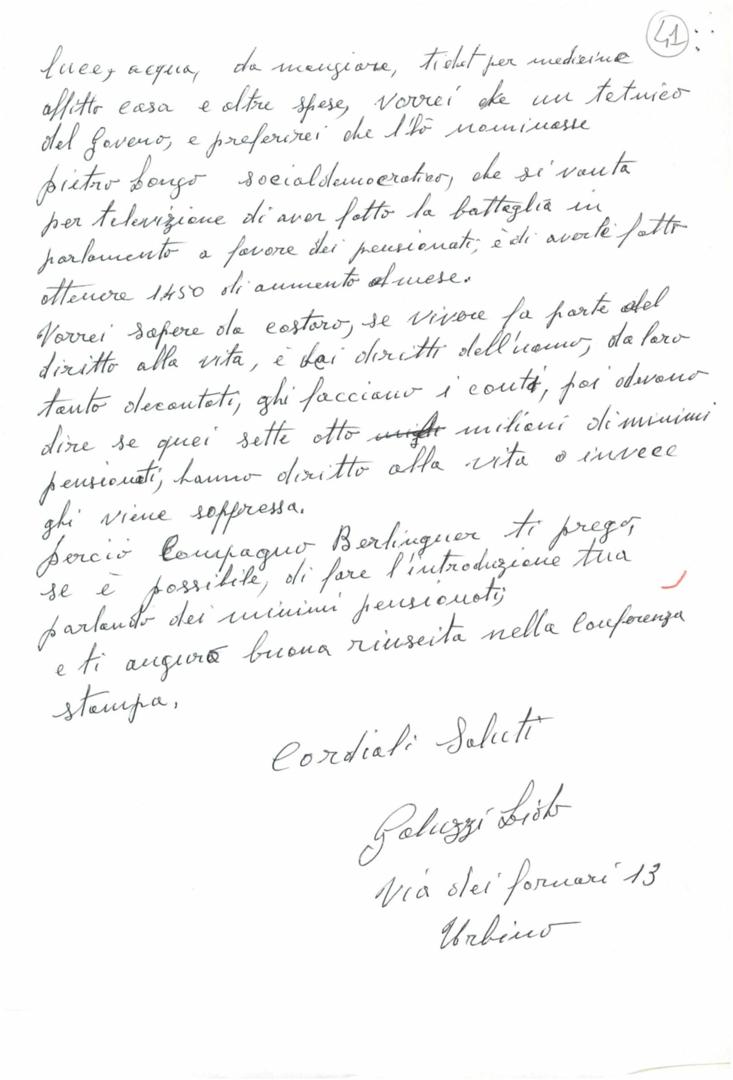 41
luce, acqua, da mangiare, ticket per medicine
affitto casa e altre spese, vorrei che un tetnico
del Goveno, e preferirei che lo nominasse
pietro Longo socialdemocratico, che si vanta
per televizione di aver fatto la battaglia in
parlamento a favore dei pensionati, è di averle fatto
ottenere 1450 di aumento al mese.
Vorrei sapere da costoro, se vivere fa parte del
diritto alla vita, è dei diritti dell'uomo, da loro
tanto decantati, ghi facciano i conti, poi devono
dire se quei sette otto milioni di minimi
pensionati, hanno diritto alla vita o invece
ghi viene soppressa.
perciò Compagno Berlinguer ti prego,
se è possibile, di fare l'introduzione tua
parlando dei minimi pensionati,
e ti auguro buona riuscita nella Conferenza
stampa,
Cordiali Saluti
Galuzzi
Via dei fornari 13
Urbino